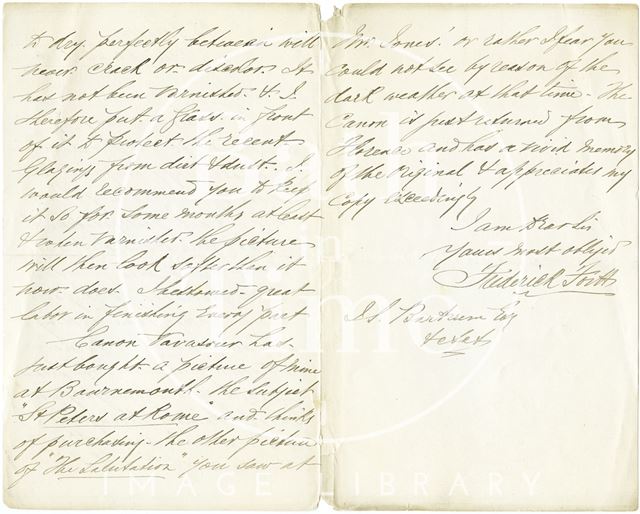 to dry perfectly between will
never crack or discolor. It
has not been varnished. & I
therefore put a glass in front
of it to protect the recent
Glazings from dirt & dust. I
would recommend you to keep
it so for some months at least
& when varnished the picture
will then look softer than it
now does. I bestowed great
labor in finishing every part
Canon Vavasour has
just bought a picture of mine
at Bournemouth. the subject
"St Peters at Rome" and thinks
of purchasing the other picture
of "The Salutation" you saw at
Mr. Jones' or rather I fear you
could not see by reason of the
dark weather at that time. The
Canon is just returned from
Florence and has a vivid memory
of the Original & appreciates my
copy exceedingly
I am Dear Sir
Yours most obliged
Frederick Tovtt
J. S. Bartrum Esq
&c &c &c
Bath in Time
IMAGE LIBRARY